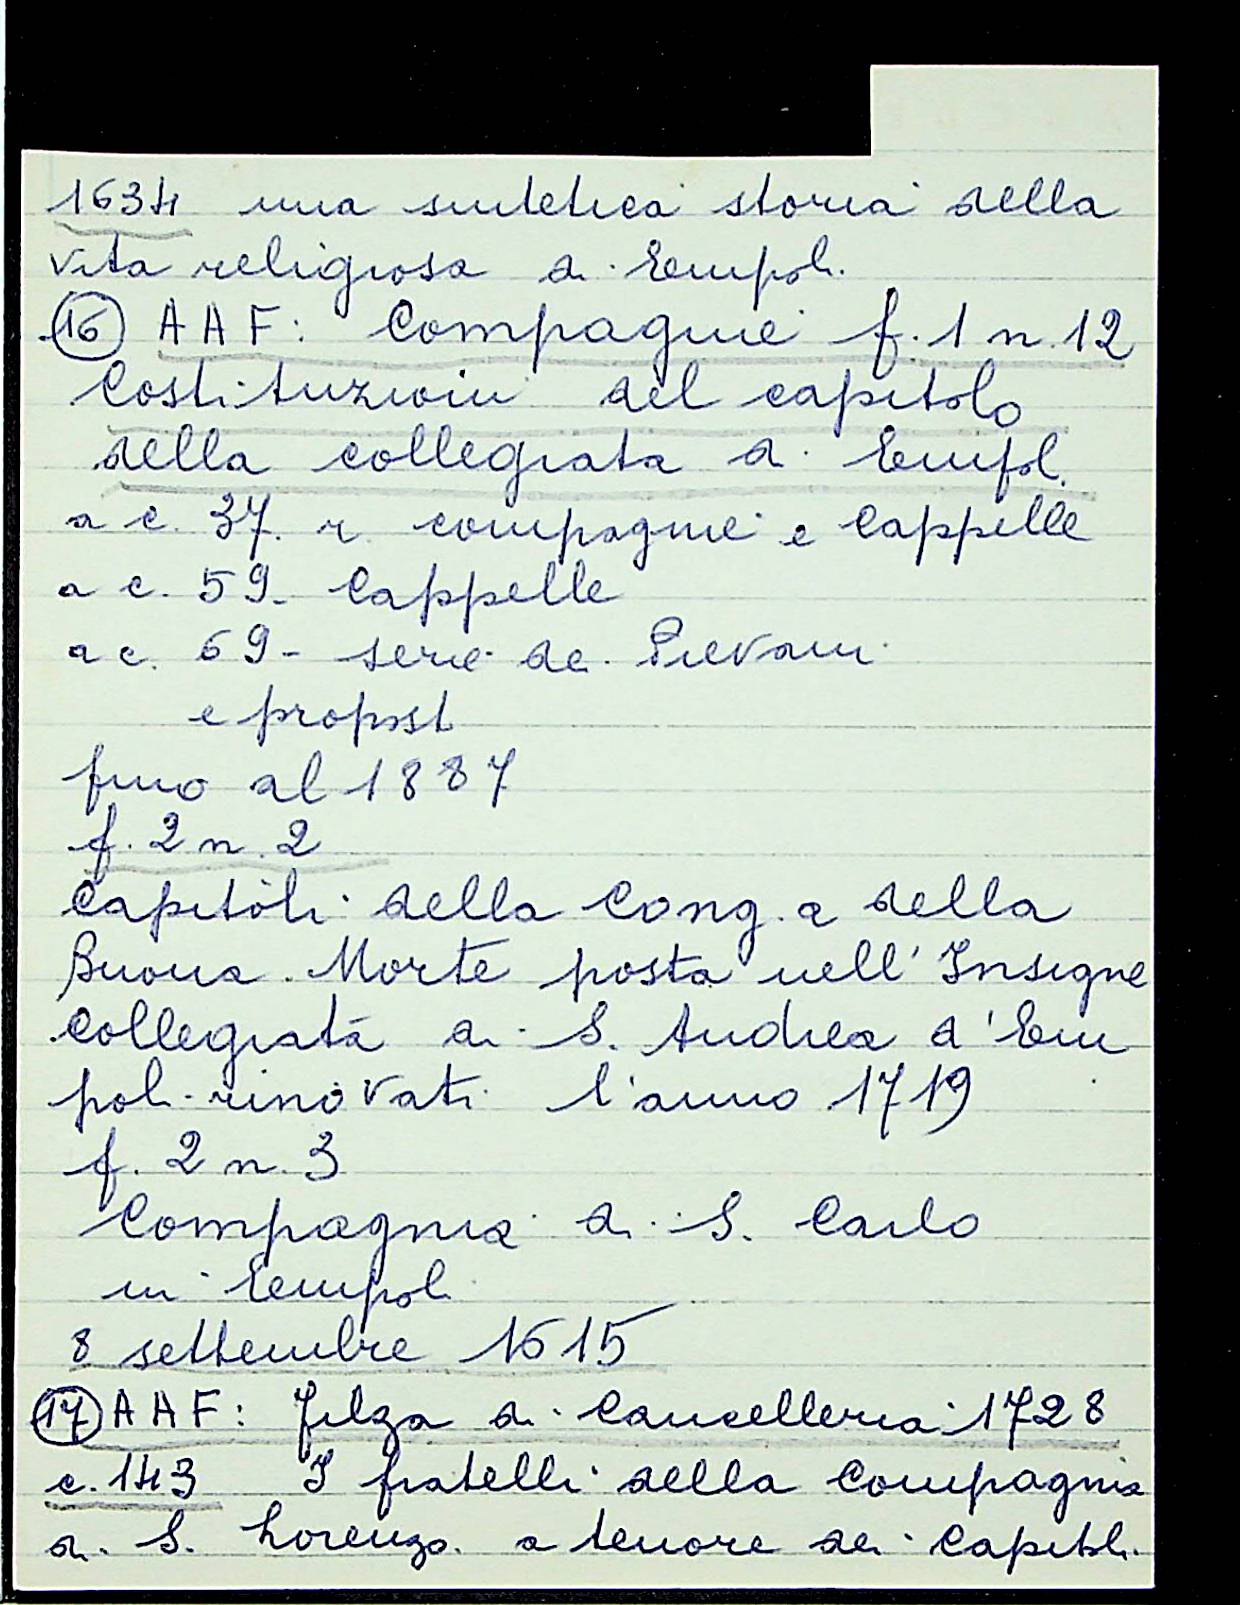 1634 una sintetica storia della
vita religiosa di Empoli.
16 AAF: Compagnie f. 1 n. 12
Costituzioni del capitolo
della collegiata di Empoli.
a c. 37. r. compagnie e Cappelle
a c. 59- Cappelle
a c. 69- serie dei Pievani
e proposti
fino al 1887
f. 2 n. 2
Capitoli della Cong. e della
Buona Morte posta nell'Insigne
Collegiata di S. Andrea d'Em
poli rinovati l'anno 1719
f. 2 n. 3
Compagnia di S. Carlo
in Empoli
8 settembre 1615
17 AAF: Filza di Cancelleria 1728
c. 143 I fratelli della Compagnia
di S. Lorenzo a tenore dei Capitoli